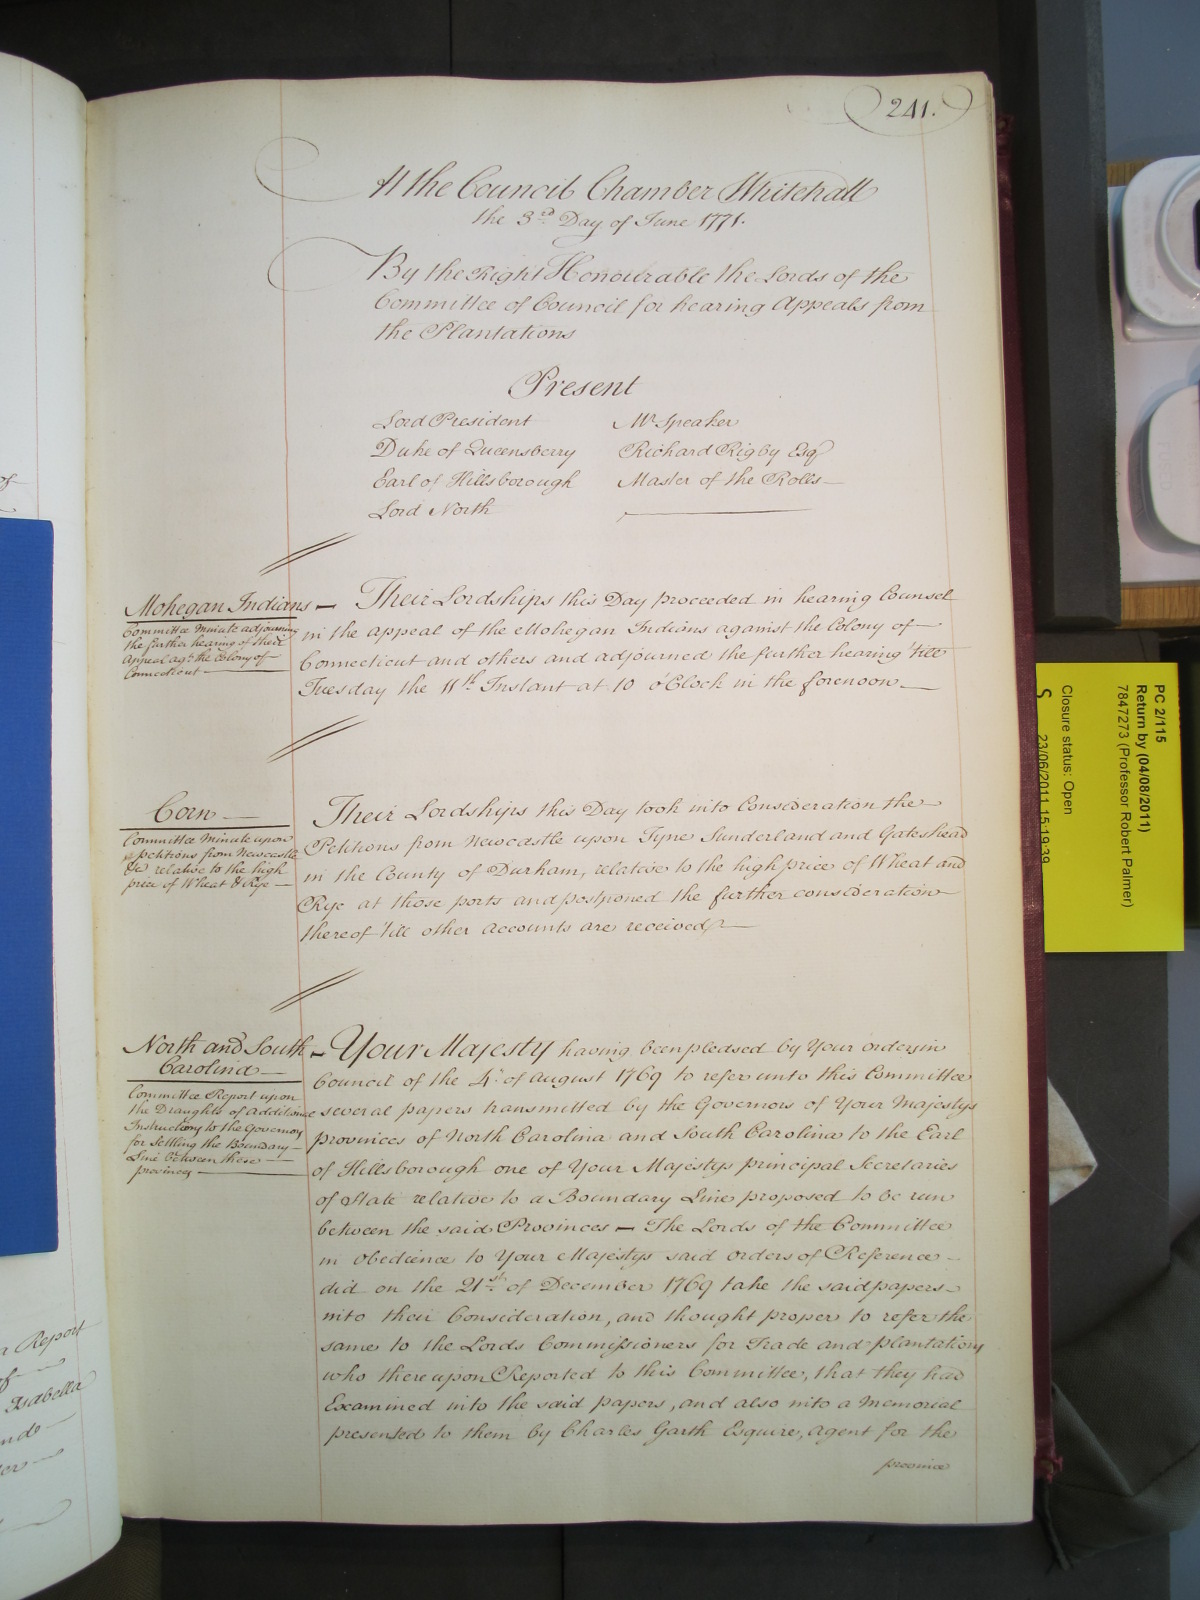 241.
At the Council Chamber Whitehall
the 3rd Day of June 1771.
By the Right Honourable the Lords of the
Committee of Council for hearing Appeals from
the Plantations
Present
Lord President
Duke of Queensberry
Earl of Hillsborough
Lord North
Mr Speaker
Richard Rigby Esqr
Master of the Rolls
Mohegan Indians
Committee Minute adjourning
the further hearing of their
Appeal agt. the Colony of
Connecticut
Their Lordships this Day proceeded in hearing Counsel
in the Appeal of the Mohegan Indians against the Colony of
Connecticut and others and adjourned the further hearing 'till
Tuesday the 11th Instant at 10 o'Clock in the forenoon
Corn
Committee Minute upon
petitions from Newcastle
&c relative to the high
price of Wheat & Rye
Their Lordships this Day took into Consideration the
Petitions from Newcastle upon Tyne Sunderland and Gateshead
in the County of Durham, relative to the high price of Wheat and
Rye at those ports and postponed the further consideration
thereof 'till other accounts are received
North and South
Carolina
Committee Report upon
the Draughts of Additional
Instructions to the Governors
for Settling the Boundary
Line between these
provinces
Your Majesty having been pleased by Your order in
Council of the 4th of August 1769 to refer unto this Committee
several papers transmitted by the Governors of Your Majestys
provinces of North Carolina and South Carolina to the Earl
of Hillsborough one of Your Majestys principal Secretaries
of State relative to a Boundary Line proposed to be run
between the said Provinces — The Lords of the Committee
in obedience to Your Majestys said orders of Reference
did on the 21st of December 1769 take the said papers
into their Consideration, and thought proper to refer the
same to the Lords Commissioners for Trade and plantations
who thereupon Reported to this Committee, that they had
Examined into the said papers, and also into a Memorial
presented to them by Charles Garth Esquire, agent for the
province
a Report
of
Isabella
PC 2/115
Return by (04/08/2011)
7847273 (Professor Robert Palmer)
Closure status: Open
S 23/06/2011 15:19:39